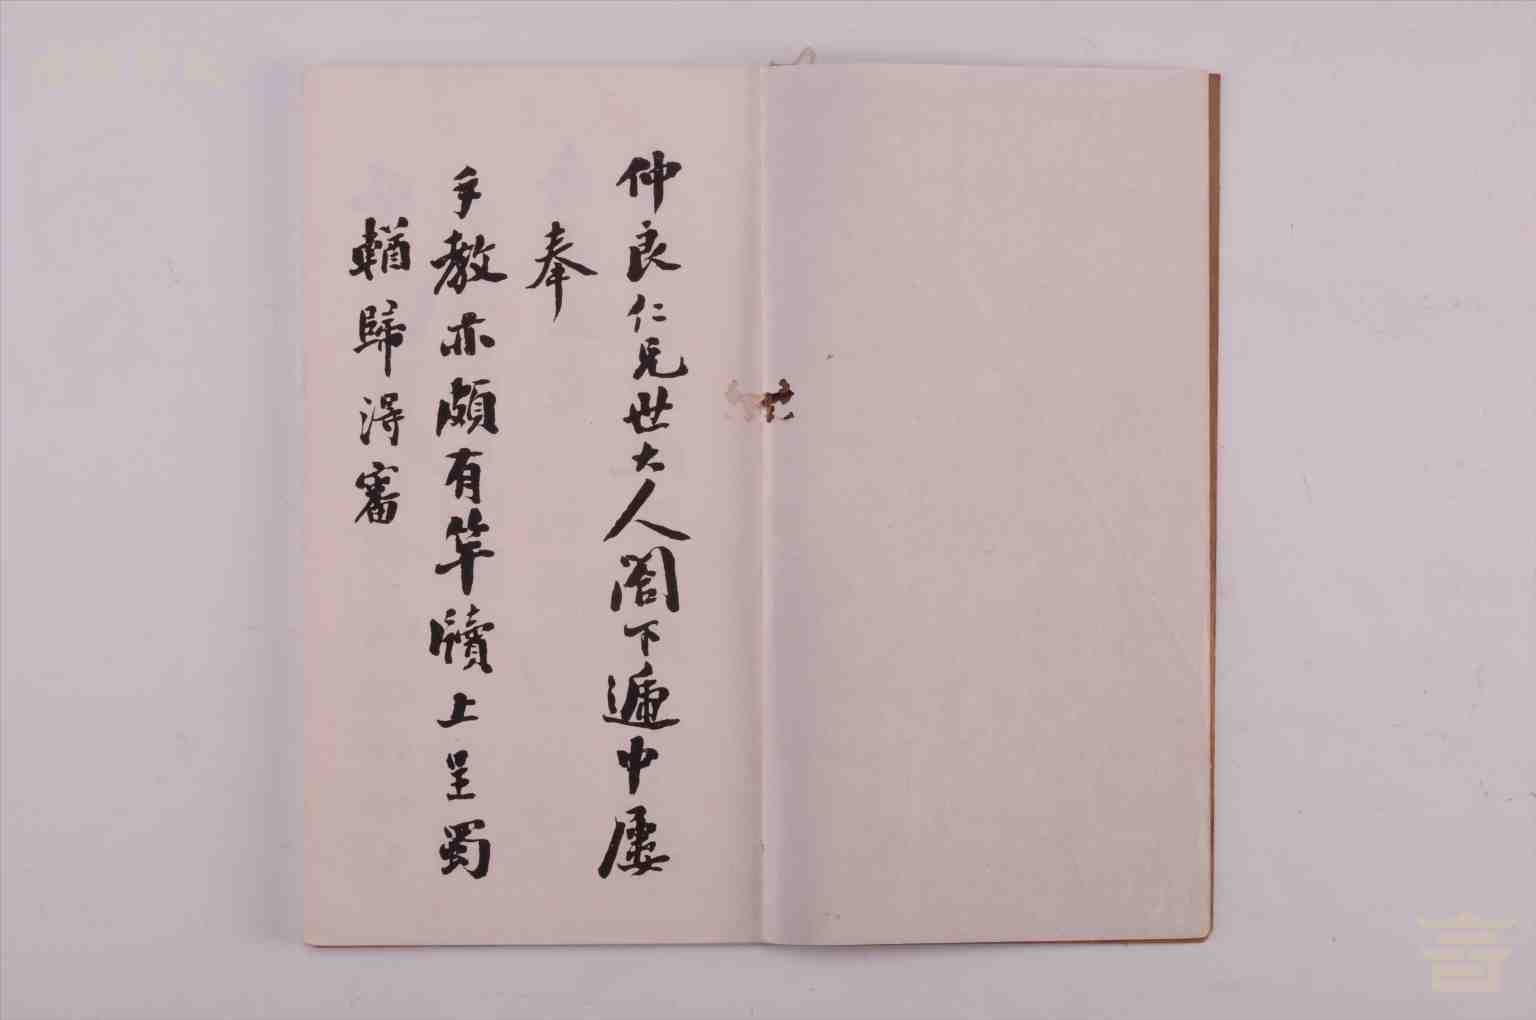 仲良仁兄世大人閣下遞中屢
奉
手教亦頗有竿牘上呈蜀
輶歸淂審